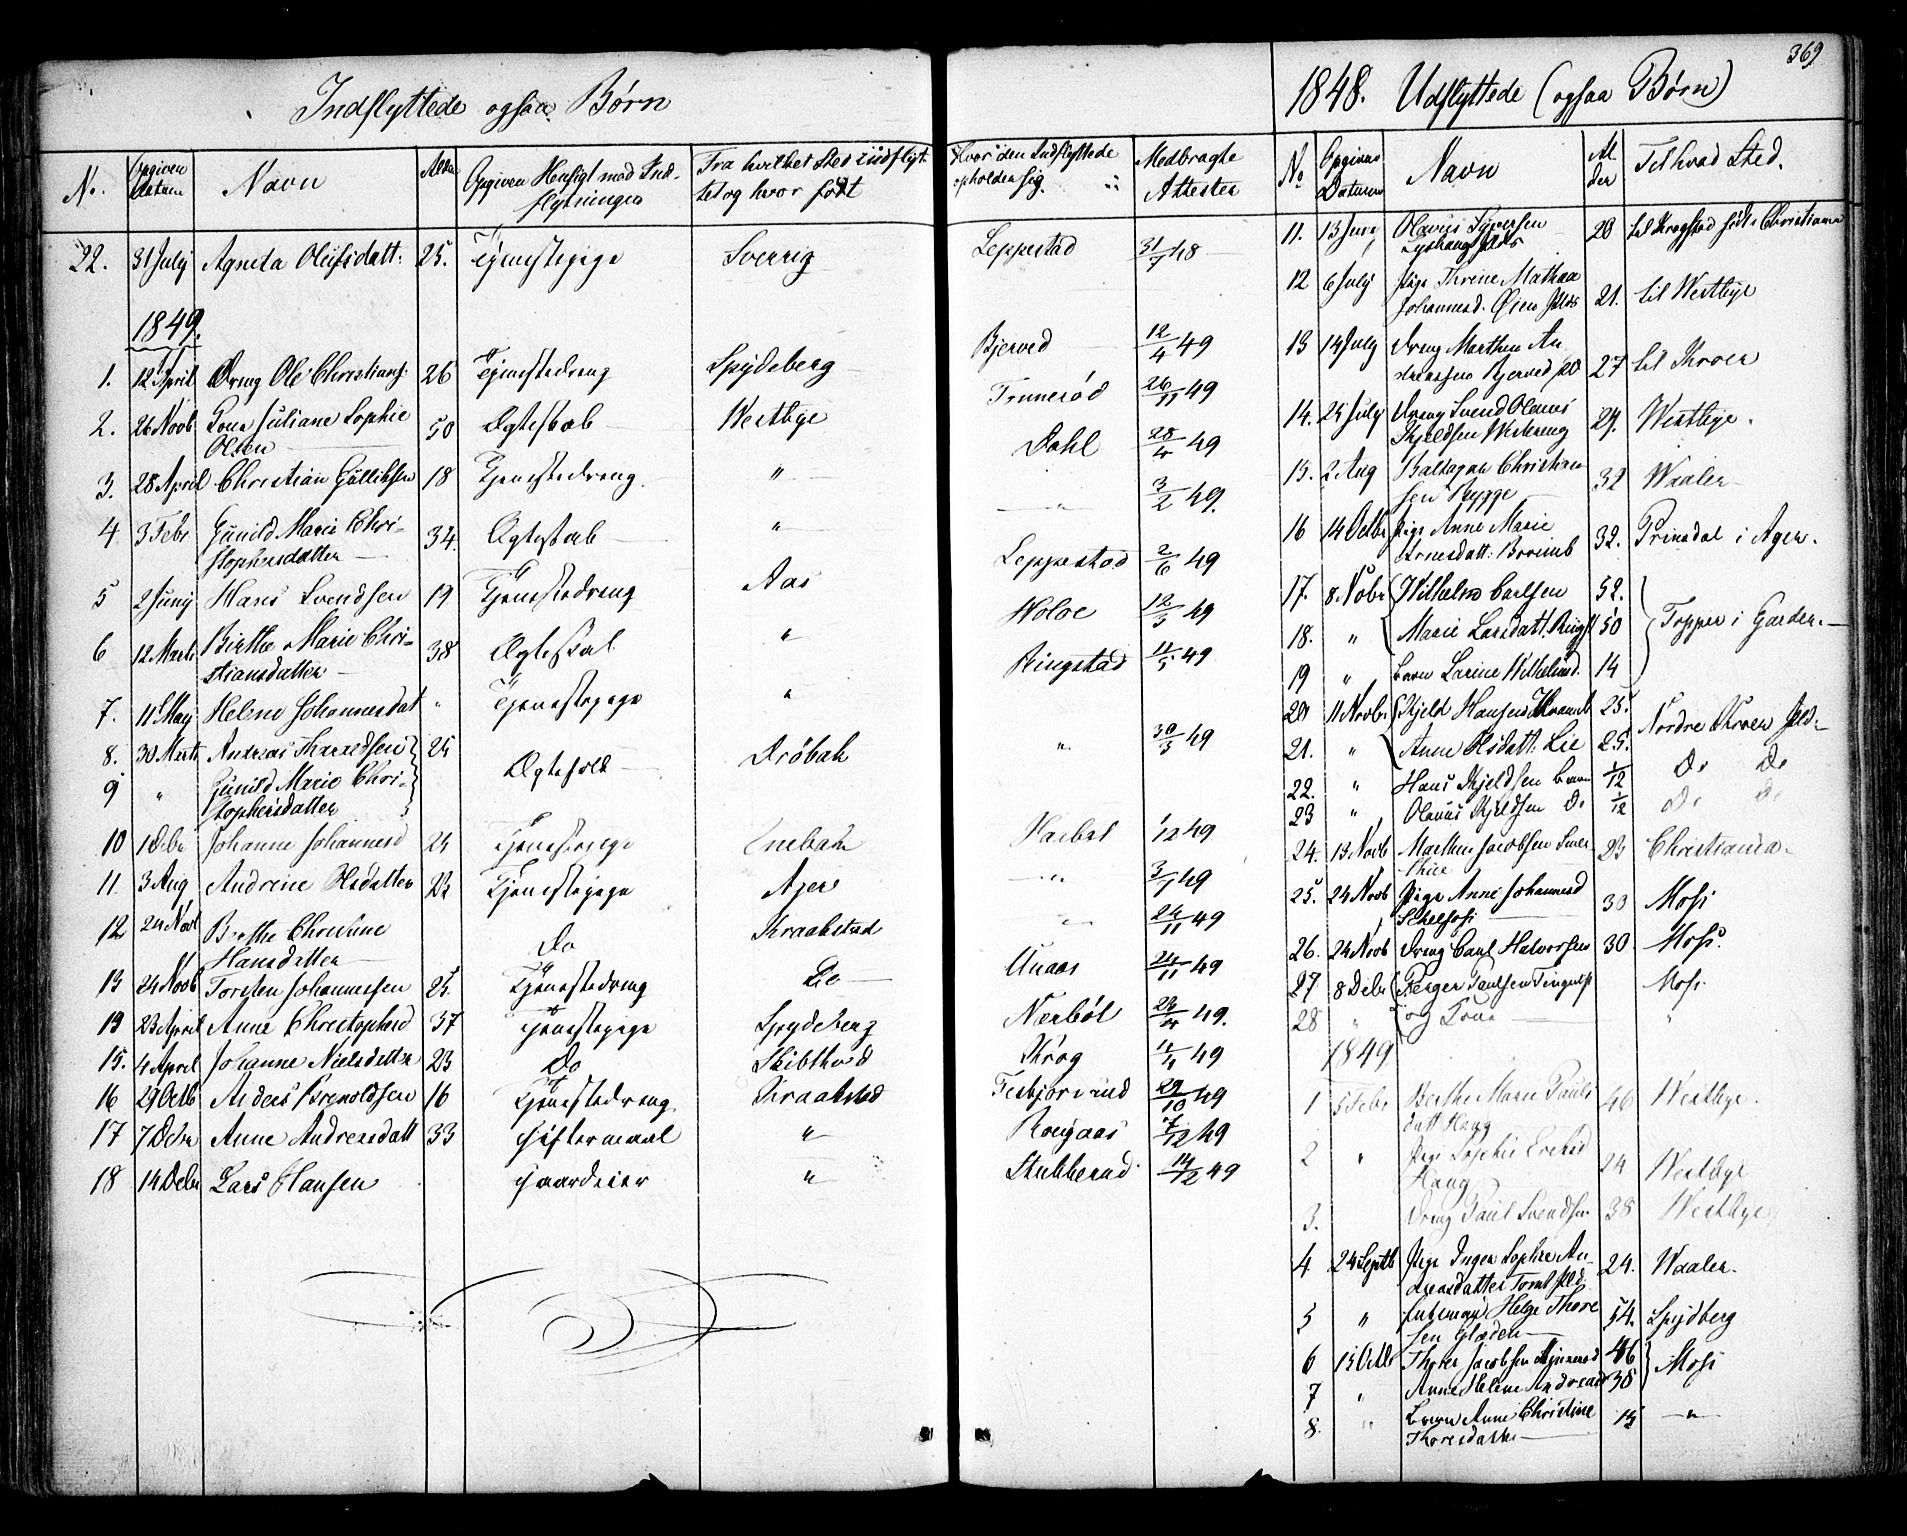 369
Indflyttede ogsaa Børn
No. Opgiven Datum Navn Alder Opgiven Hensigt med Indflytningen Fra hvilket Sted indflyttet og hvor født Hvor den Indflyttede opholder sig. Medbragte Attester
22. 31 July Agneta Olufsdatt: 25. Tjenestepige Sverrig Leppestad 31/7 48
1849.
1. 12 April Dreng Ole Christians: 26 Tjenestedreng Spydeberg Bjerved 12/4 49
2. 26 Novb Kone Juliane Sophie 50 Ægteskab Westbye 26/11 49
Olsen
3. 28 April Christian Gulliksen 18 Tjenestedreng " Dahl 28/4 49
4 3 Febr Gunild Marie Chri- 34. Ægteskab " " 3/2 49.
stophersdatter
5 2 Juny Hans Svendsen 19 Tjenestedreng Aas Leppestad 2/6 49
6 12 Marts Birthe Marie Chri- 38 Ægteskab " Holoe 12/3 49
stiansdatter
7. 11 May Helene Johannesdat " Tjenestepige " Ringstad 11/5 49
8. 30 Marts Andreas 25 Ægtefolk Drøbak " 30/3 49
9 " Gunild Marie Chri-
stophersdatter
10 1 Debr Johanne Johannesd 24 Tjenestepige Enebak Haebøl 1/12 49
11. 3 Aug Andrine Olsdatter 23 Tjenestepige Ager " 49
12 24 Novb Berthe Christine Do Kraakstad " 24/11 49
Hansdatter
13 24 Novb Torsten Johannessen 25 Tjenestedreng Do Unaas 24/11 49
13 23 April Anne Christophersd 37 Tjenestepige Spydeberg Nærbøl 23/4 49.
15. 4 April Johanne Nielsdatter 23 Do Skibthved Krog 4/4 49
16 29 Octb Anders Brenoldsen 16 Tjenestedreng Kraakstad 29/10 49
17 7 Debr Anne Andreasdatt 33 Giftermaal " Rougaas 7/12 49
18 14 Debr Lars Hansen Gaardeier " Stubberud 14/12 49
1848. Udflyttede (ogsaa Børn)
No Opgiven Datum Navn Alder Til hvad Sted.
11. 13 Juny Olavus Syversen 20 til Kragstad født i Christiania
12 6 July Pige Thrine Mathea
Johannesd. Øien 21. til Westbye
13 14 July Dreng Marthin An
dreassen Bjerved 27 til Kroer
14. 25 July Dreng Svend Olaus
Kjeldsen Westereng 29. Westbye.
15. 2 Aug Baltazar Christian
sen Rygge 32 Waaler
16 14 Octbr Pige Anne Marie
Arnesdatt: 32. Prinsdal i Ager.
17. 8 Novbr Wilhelm Carlsen 52.
18. " Marie Larsdatt. Ringst 50 Topper i Garder.
19 " barn Larine Wilhelmsd. 14
20 11 Novbr Kjeld Hansen 25. Nordre Kroer
21. " Anne Olsdatt. Lie 25.
22. " Hans Kjeldsen barn 1/12 Do Do
23 " Olaus Kjeldsen Do 1/12 Do Do
24. 13 Novb Marthin Jacobsen 23 Christiania
25. 24 Novb Pige Anne Johannesd 30 Moss
26. 24 Novb Dreng Carl Halvorsen 30 Moss
27 8 Debr Berger Paulsen Moss
28 " og Kone "
1849
1 5 Febr Berthe Marie Pauls 46 Westbye.
datt Haug
2 " Pige Sophie Ericksd 24 Westbye
Haug
3. Dreng Paul Svendsen 38 Westbye
4 24 Septb Pige Inger Sophie An 24. Waaler
dreasdatter
5 " Helge Thore 54. Spydberg
sen Glæden
6 15 Octb Thore Jacobsen 46 Moss
7 " Anne Helene Andreasd 38
8. " Barn Anne Christine 15 "
Thoresdatter